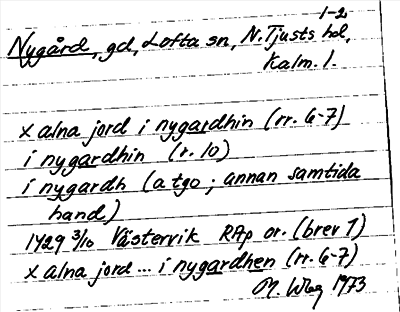 1-2
Nygård, gd, Lofta sn, N. Tjusts hd,
Kalm. l.
x alna jord i nygardhin (rr. 6-7)
i nygardhin (r. 10)
i nygardh (a tgo; annan samtida
hand)
1429 3/10 Västervik RAp or. (brev 1)
x alna jord ... i nygardhen (rr. 6-7)
M. Wbg 1973